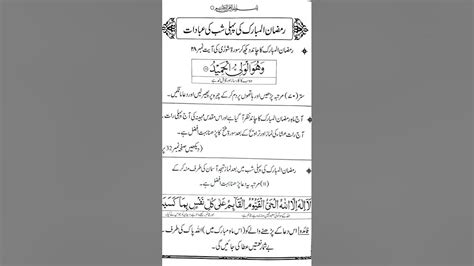 رمضان المبارک کی پہلی شب کی عبادات
رمضان المبارک کا چاند دیکھ کر سورۃ شوریٰ کی آیت نمبر ۲۸
وَهُوَ الْوَلِيُّ الْحَمِيدُ
ستر (۷۰) مرتبہ پڑھیں اور ہاتھوں پر دم کر کے اپنے چہرہ پر پھیر لیں اور دعا مانگیں۔
آج ماہ رمضان المبارک کا چاند نظر آگیا ہے اور اس مقدس مہینہ کی آج پہلی رات
آج رات عشاء کی نماز اور تراویح کے بعد سورۃ فتح کا پڑھنا بہت افضل ہے۔
رمضان المبارک کی پہلی شب میں بعد نماز تہجد آسمان کی طرف منہ کر کے
مرتبہ یہ دعا پڑھنا بہت افضل ہے۔
لَا إِلٰهَ إِلَّا اللهُ الْحَيُّ الْقَيُّومُ الْقَائِمُ عَلَىٰ كُلِّ نَفْسٍ بِمَا كَسَبَتْ
اس دعا کے پڑھنے والے کو (اس ماہ مبارک میں) اللہ پاک کی طرف سے
بے شمار نعمتیں عطا کی جائیں گی۔